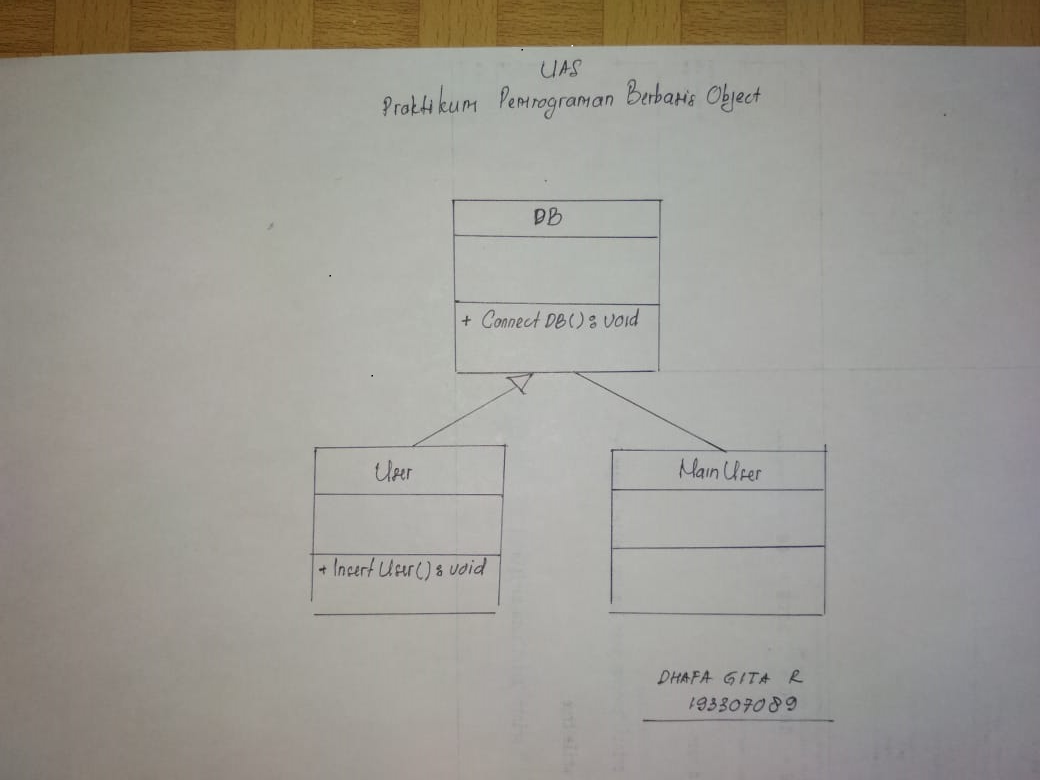 UAS
Praktikum Pemrograman Berbasis Object
DB
+ Connect DB() : void
User
+ Insert User() : void
Main User
DHAFA GITA R
193307089